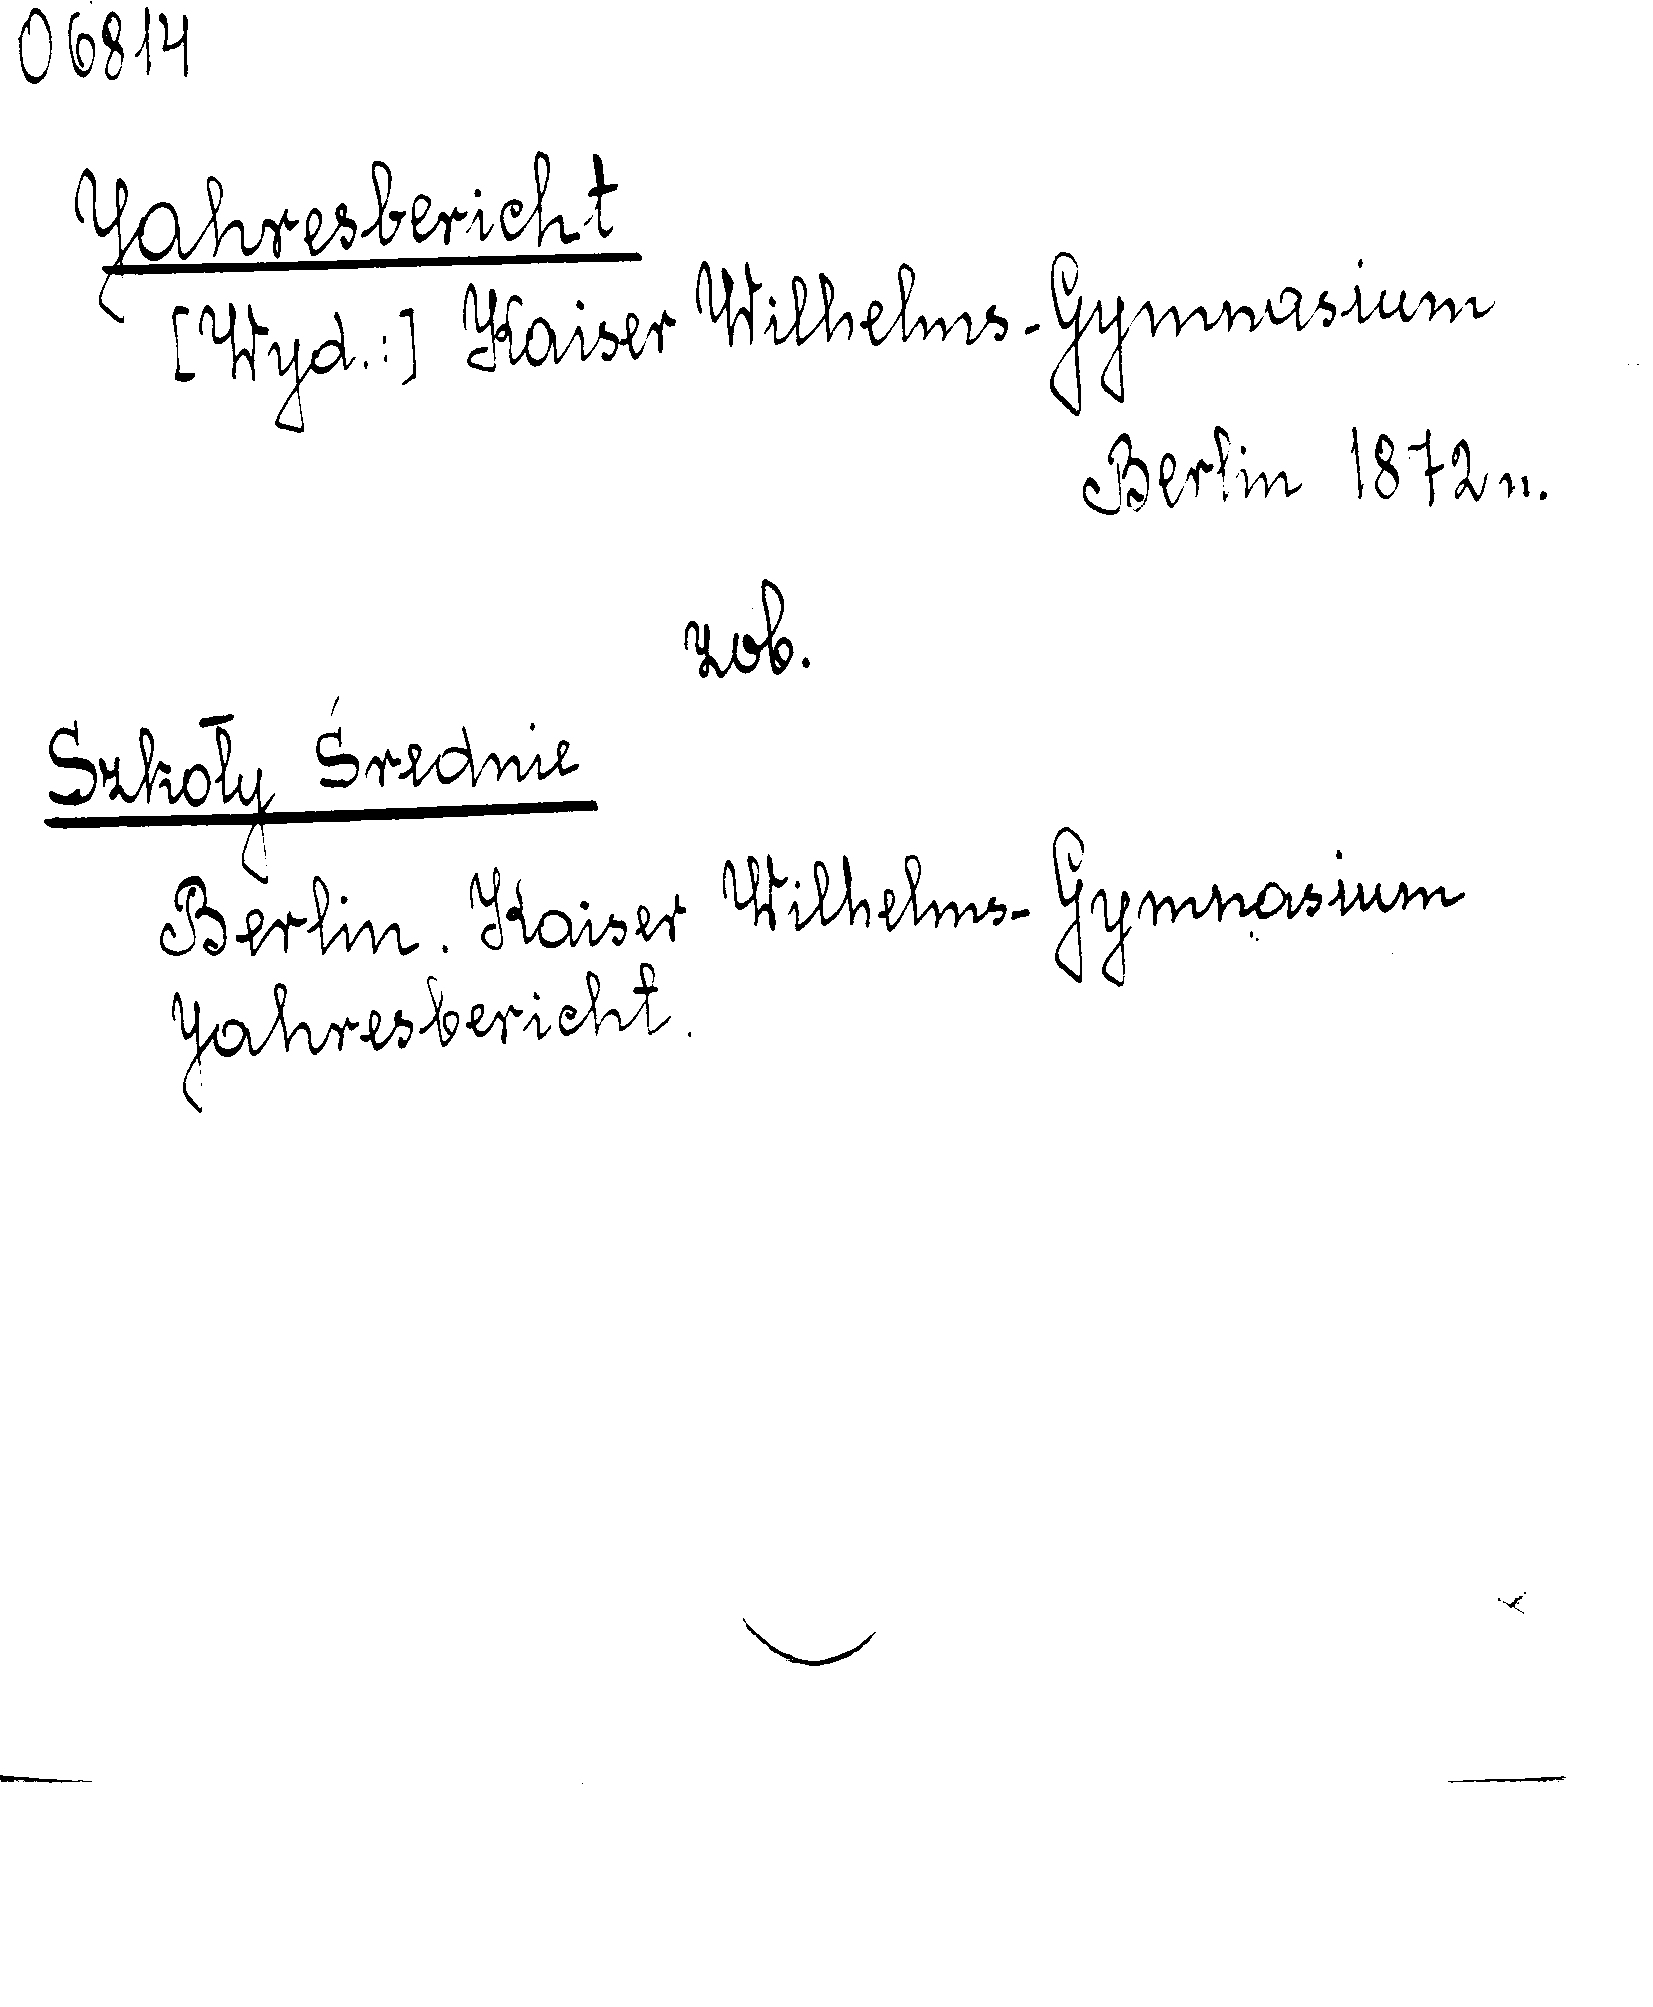 06814
Jahresbericht
[Wyd.:] Kaiser Wilhelms-Gymnasium
Berlin 1872 n.
zob.
Szkoły Średnie
Berlin. Kaiser Wilhelms-Gymnasium
Jahresbericht.